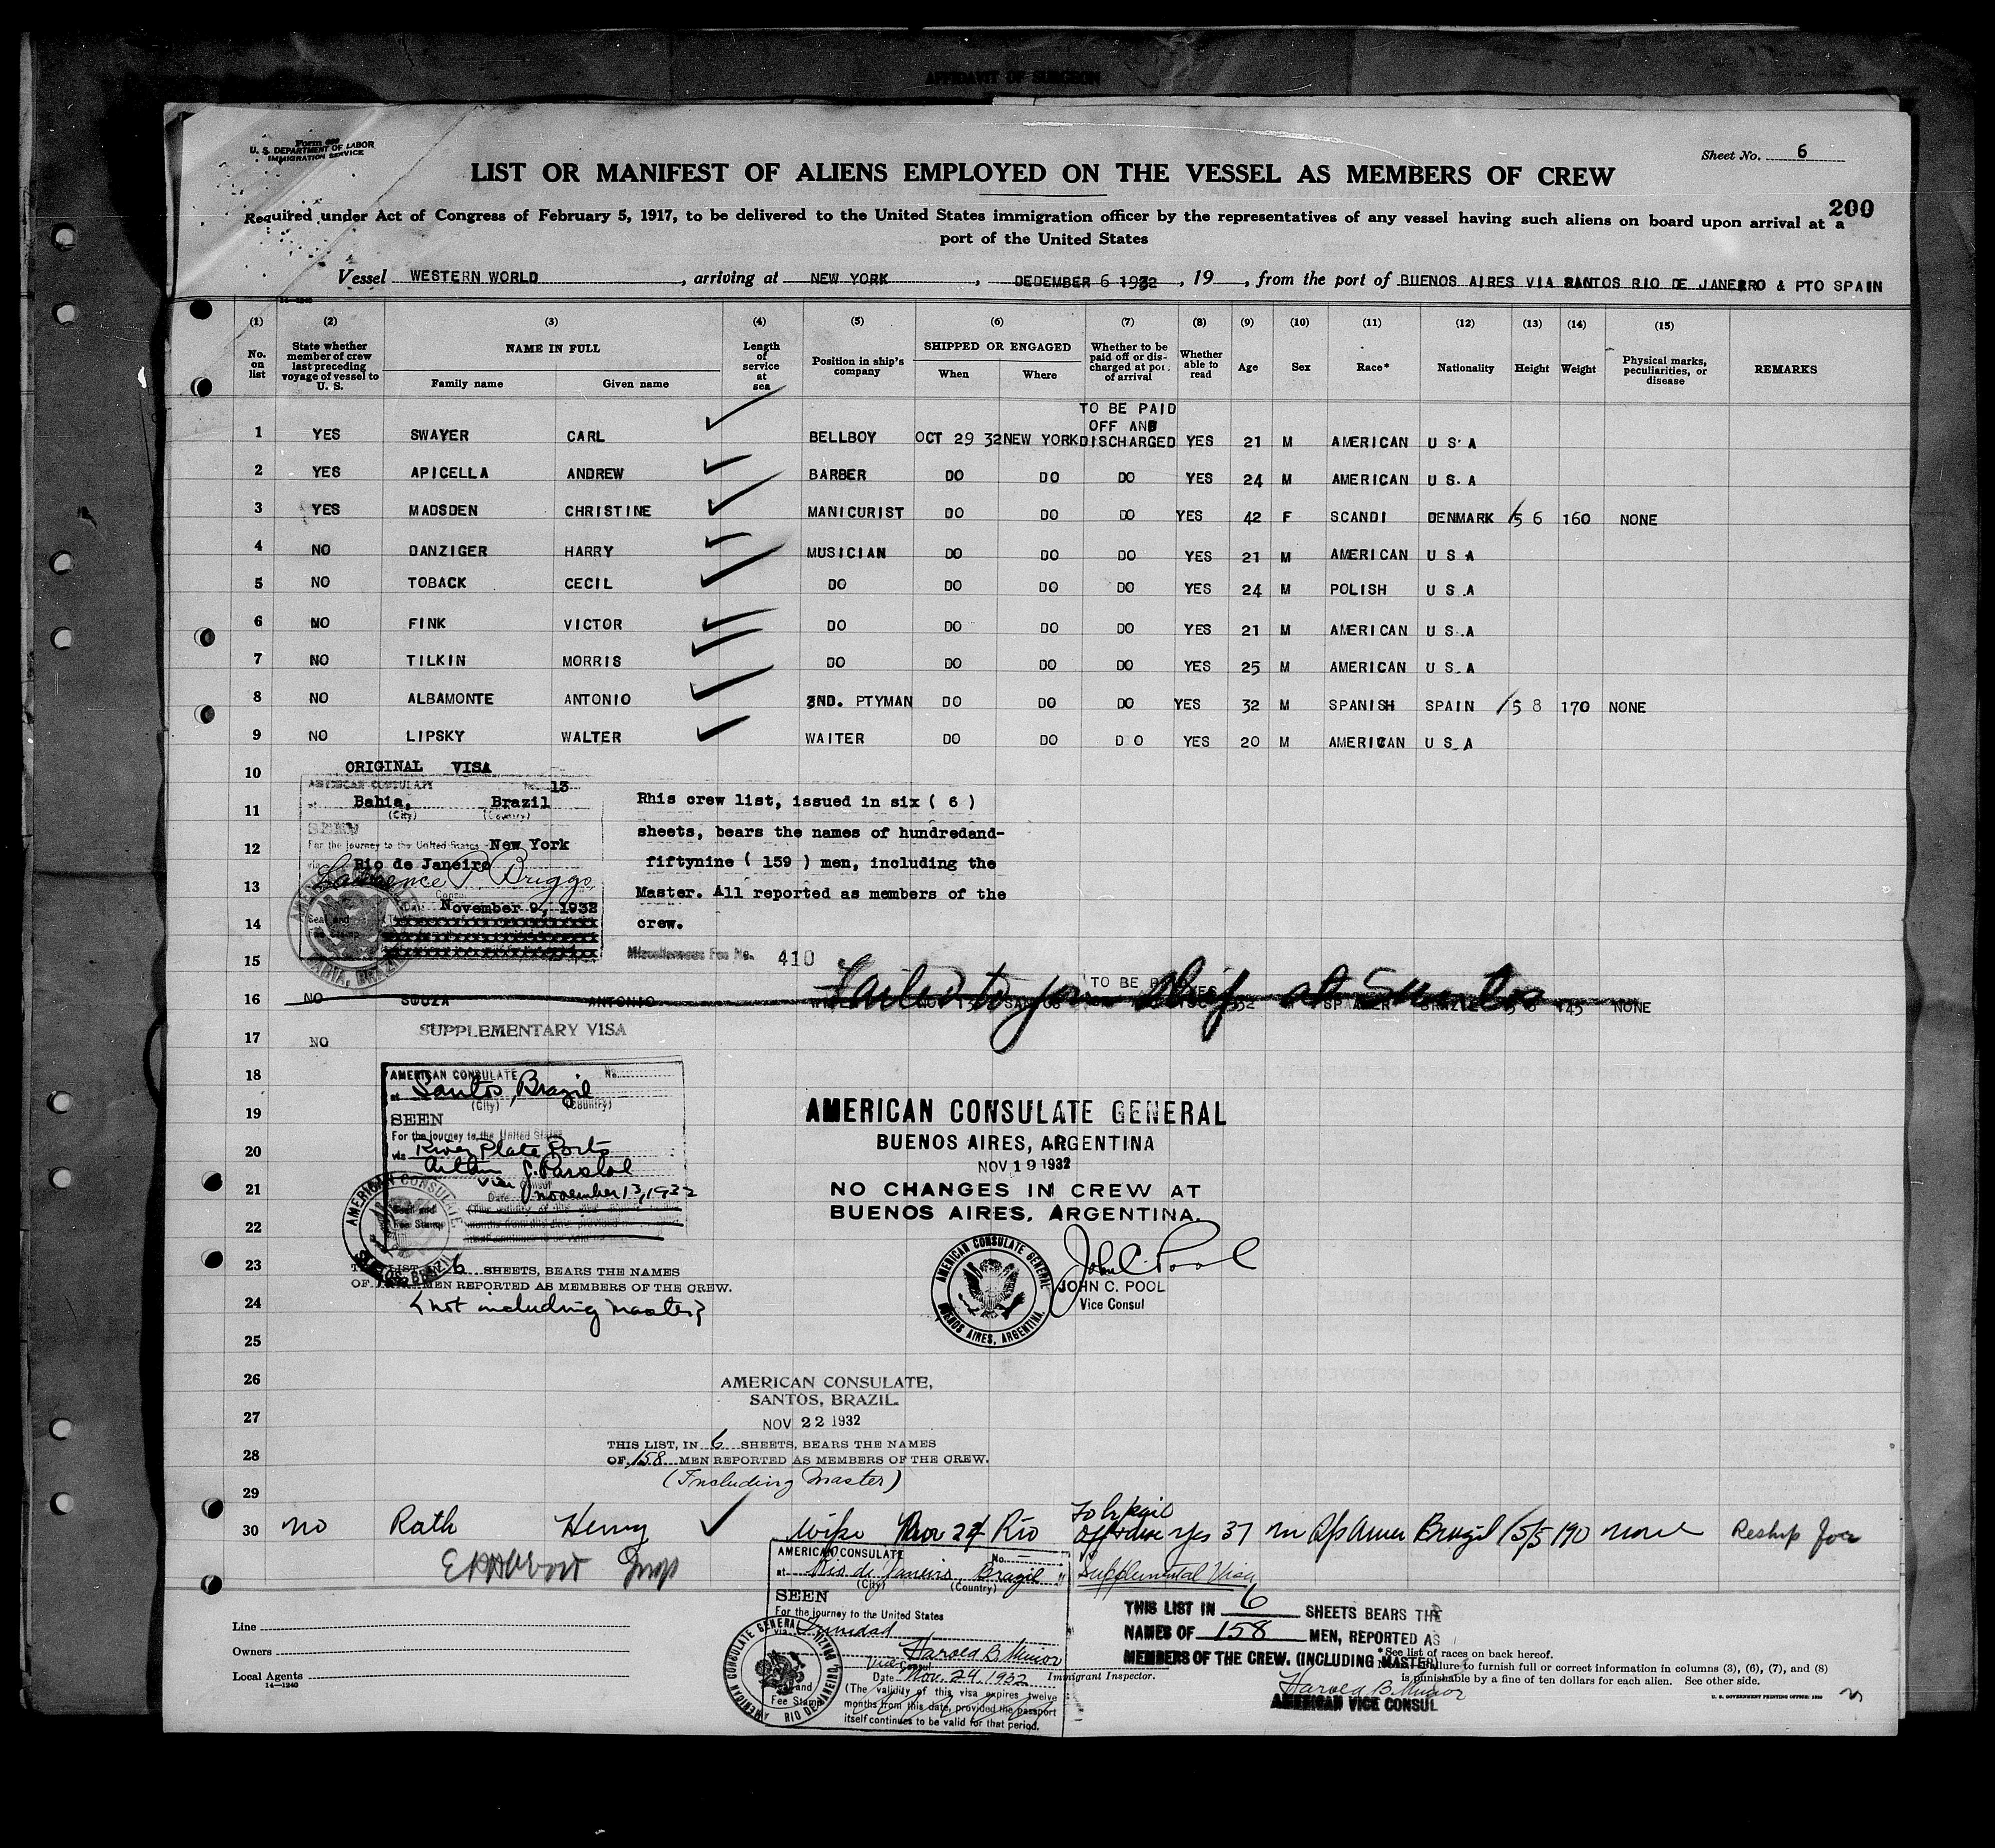 AFFIDAVIT OF SURGEON
Form 680
U. S. DEPARTMENT OF LABOR
IMMIGRATION SERVICE
Sheet No. 6
LIST OR MANIFEST OF ALIENS EMPLOYED ON THE VESSEL AS MEMBERS OF CREW
200
Required under Act of Congress of February 5, 1917, to be delivered to the United States immigration officer by the representatives of any vessel having such aliens on board upon arrival at a
port of the United States
Vessel WESTERN WORLD, arriving at NEW YORK, DEDEMBER 6 1932, 19, from the port of BUENOS AIRES VIA SANTOS RIO DE JANEIRO & PTO SPAIN
14—1240
(1) (2) (3) (4) (5) (6) (7) (8) (9) (10) (11) (12) (13) (14) (15)
No. on list State whether member of crew last preceding voyage of vessel to U. S. NAME IN FULL Family name Given name Length of service at sea Position in ship's company SHIPPED OR ENGAGED When Where Whether to be paid off or discharged at port of arrival Whether able to read Age Sex Race* Nationality Height Weight Physical marks, peculiarities, or disease REMARKS
TO BE PAID
OFF AND
1 YES SWAYER CARL BELLBOY OCT 29 32 NEW YORK DISCHARGED YES 21 M AMERICAN U S A
2 YES APICELLA ANDREW BARBER DO DO DO YES 24 M AMERICAN U S. A
3 YES MADSDEN CHRISTINE MANICURIST DO DO DO YES 42 F SCANDI DENMARK 5 6 160 NONE
4 NO DANZIGER HARRY MUSICIAN DO DO DO YES 21 M AMERICAN U S A
5 NO TOBACK CECIL DO DO DO DO YES 24 M POLISH U S .A
6 NO FINK VICTOR DO DO DO DO YES 21 M AMERICAN U S..A
7 NO TILKIN MORRIS DO DO DO DO YES 25 M AMERICAN U S.A
8 NO ALBAMONTE ANTONIO 2ND. PTYMAN DO DO DO YES 32 M SPANISH SPAIN 5 8 170 NONE
9 NO LIPSKY WALTER WAITER DO DO D O YES 20 M AMERICAN U S A
10 ORIGINAL VISA
AMERICAN CONSULATE No. 13
11 at Bahia, Brazil
(City) (Country)
SEEN
12 For the journey to the United States New York
via Rio de Janeiro
13 Lawrence P. Briggs
Consul
Date November 9, 1932
14 Seal and Fee Stamp
BAHIA, BRAZIL
Rhis crew list, issued in six ( 6 )
sheets, bears the names of hundredand-
fiftynine ( 159 ) men, including the
Master. All reported as members of the
crew.
15 Miscellaneous Fee No. 410
Failed to join ship at Santos
TO BE
16 NO SOUZA ANTONIO SANTOS 145 NONE
17 NO SUPPLEMENTARY VISA
18 AMERICAN CONSULATE No.
at Santos, Brazil
19 (City) (Country)
SEEN
For the journey to the United States
20 via River Plate Ports
Vice Consul
21 Date November 13, 1932
22 Seal and Fee Stamp
AMERICAN CONSULATE
SANTOS, BRAZIL
23 THIS LIST, IN 6 SHEETS, BEARS THE NAMES
OF MEN REPORTED AS MEMBERS OF THE CREW.
24 (not including master)
AMERICAN CONSULATE GENERAL
BUENOS AIRES, ARGENTINA
NOV 19 1932
NO CHANGES IN CREW AT
BUENOS AIRES, ARGENTINA.
AMERICAN CONSULATE GENERAL
BUENOS AIRES, ARGENTINA.
John C. Pool
JOHN C. POOL
Vice Consul
25
26 AMERICAN CONSULATE,
SANTOS, BRAZIL.
27 NOV 22 1932
28 THIS LIST, IN 6 SHEETS, BEARS THE NAMES
OF 158 MEN REPORTED AS MEMBERS OF THE CREW.
(Including Master)
29
To be paid
30 no Rath Henry Wipe Nov 24 Rio off & disc yes 37 m Brazil 5/5 190 none Reship for
Supplemental Visa
AMERICAN CONSULATE No.
at Rio de Janeiro, Brazil
(City) (Country)
SEEN
For the journey to the United States
via Trinidad
Harold B. Minor
Vice Consul
Date Nov. 24, 1932
(The validity of this visa expires twelve
months from this date, provided the passport
itself continues to be valid for that period.
Seal and Fee Stamp
AMERICAN CONSULATE GENERAL
RIO DE JANEIRO, BRAZIL
THIS LIST IN 6 SHEETS BEARS THE
NAMES OF 158 MEN, REPORTED AS
MEMBERS OF THE CREW. (INCLUDING MASTER)
Harold B. Minor
AMERICAN VICE CONSUL
Line
Owners
Local Agents
14—1240
Immigrant Inspector.
*See list of races on back hereof.
Failure to furnish full or correct information in columns (3), (6), (7), and (8)
is punishable by a fine of ten dollars for each alien. See other side.
U. S. GOVERNMENT PRINTING OFFICE: 1930